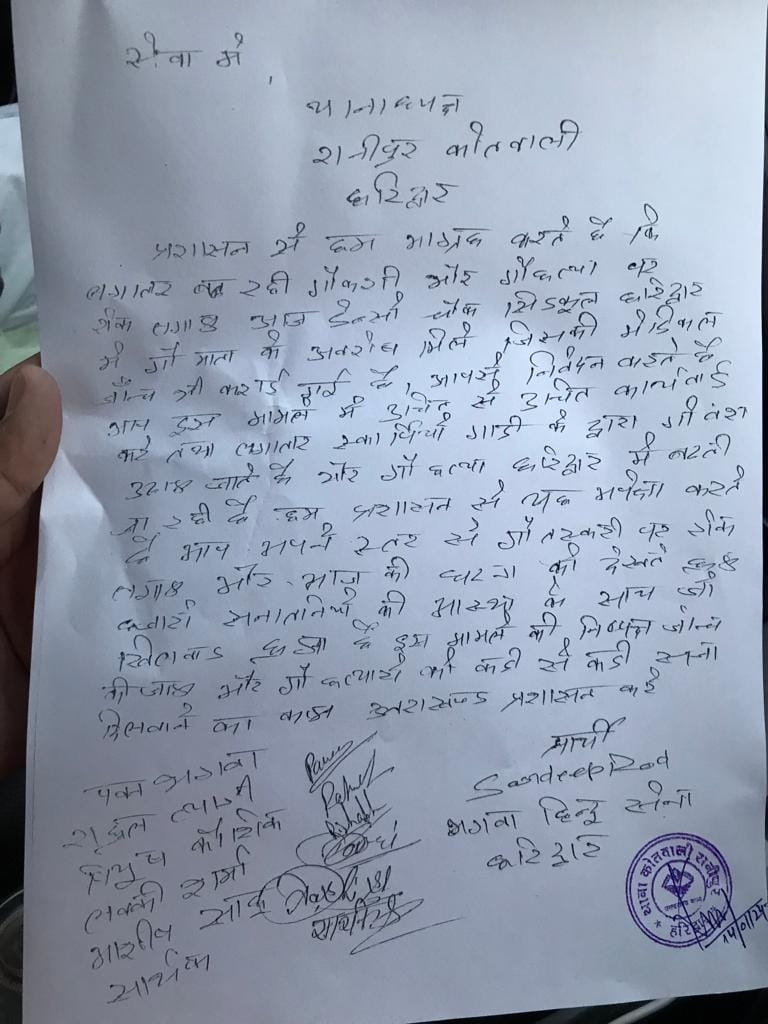 सेवा में,
थानाध्यक्ष
रानीपुर कोतवाली
हरिद्वार
प्रशासन से हम आग्रह करते है कि
लगातार बढ रही गौकशी और गौहत्या पर
रोक लगाए आज डेन्सो चौक सिडकुल हरिद्वार
मे गौ माता के अवशेष मिले जिसकी मेडिकल
जाँच भी कराई गई है, आपसे निवेदन करते है
आप इस मामले में उचित से उचित कार्यवाई
करे तथा लगातार स्कार्पियो गाडी के द्वारा गौ वंश
उठाए जाते है और गौ हत्या हरिद्वार में बढती
जा रही है हम प्रशासन से यह अपेक्षा करते
है आप अपने स्तर से गौ तस्करी पर रोक
लगाए और आज की घटना को देखते हुए
हजारो सनातनियो की आस्था के साथ जो
खिलवाड हुआ है इस मामले की निष्पक्ष जाँच
की जाए और गौ हत्यारो को कडी से कडी सजा
दिलवाने का काम उत्तराखण्ड प्रशासन करे
प्रार्थी
Sandeep
भगवा हिन्दू सेना
हरिद्वार
भगवा
राहुल त्यागी
पियुष कौशिक
लक्की शर्मा
आशीष
सार्थक
Rahul
सार्थक
थाना कोतवाली रानीपुर
हरिद्वार